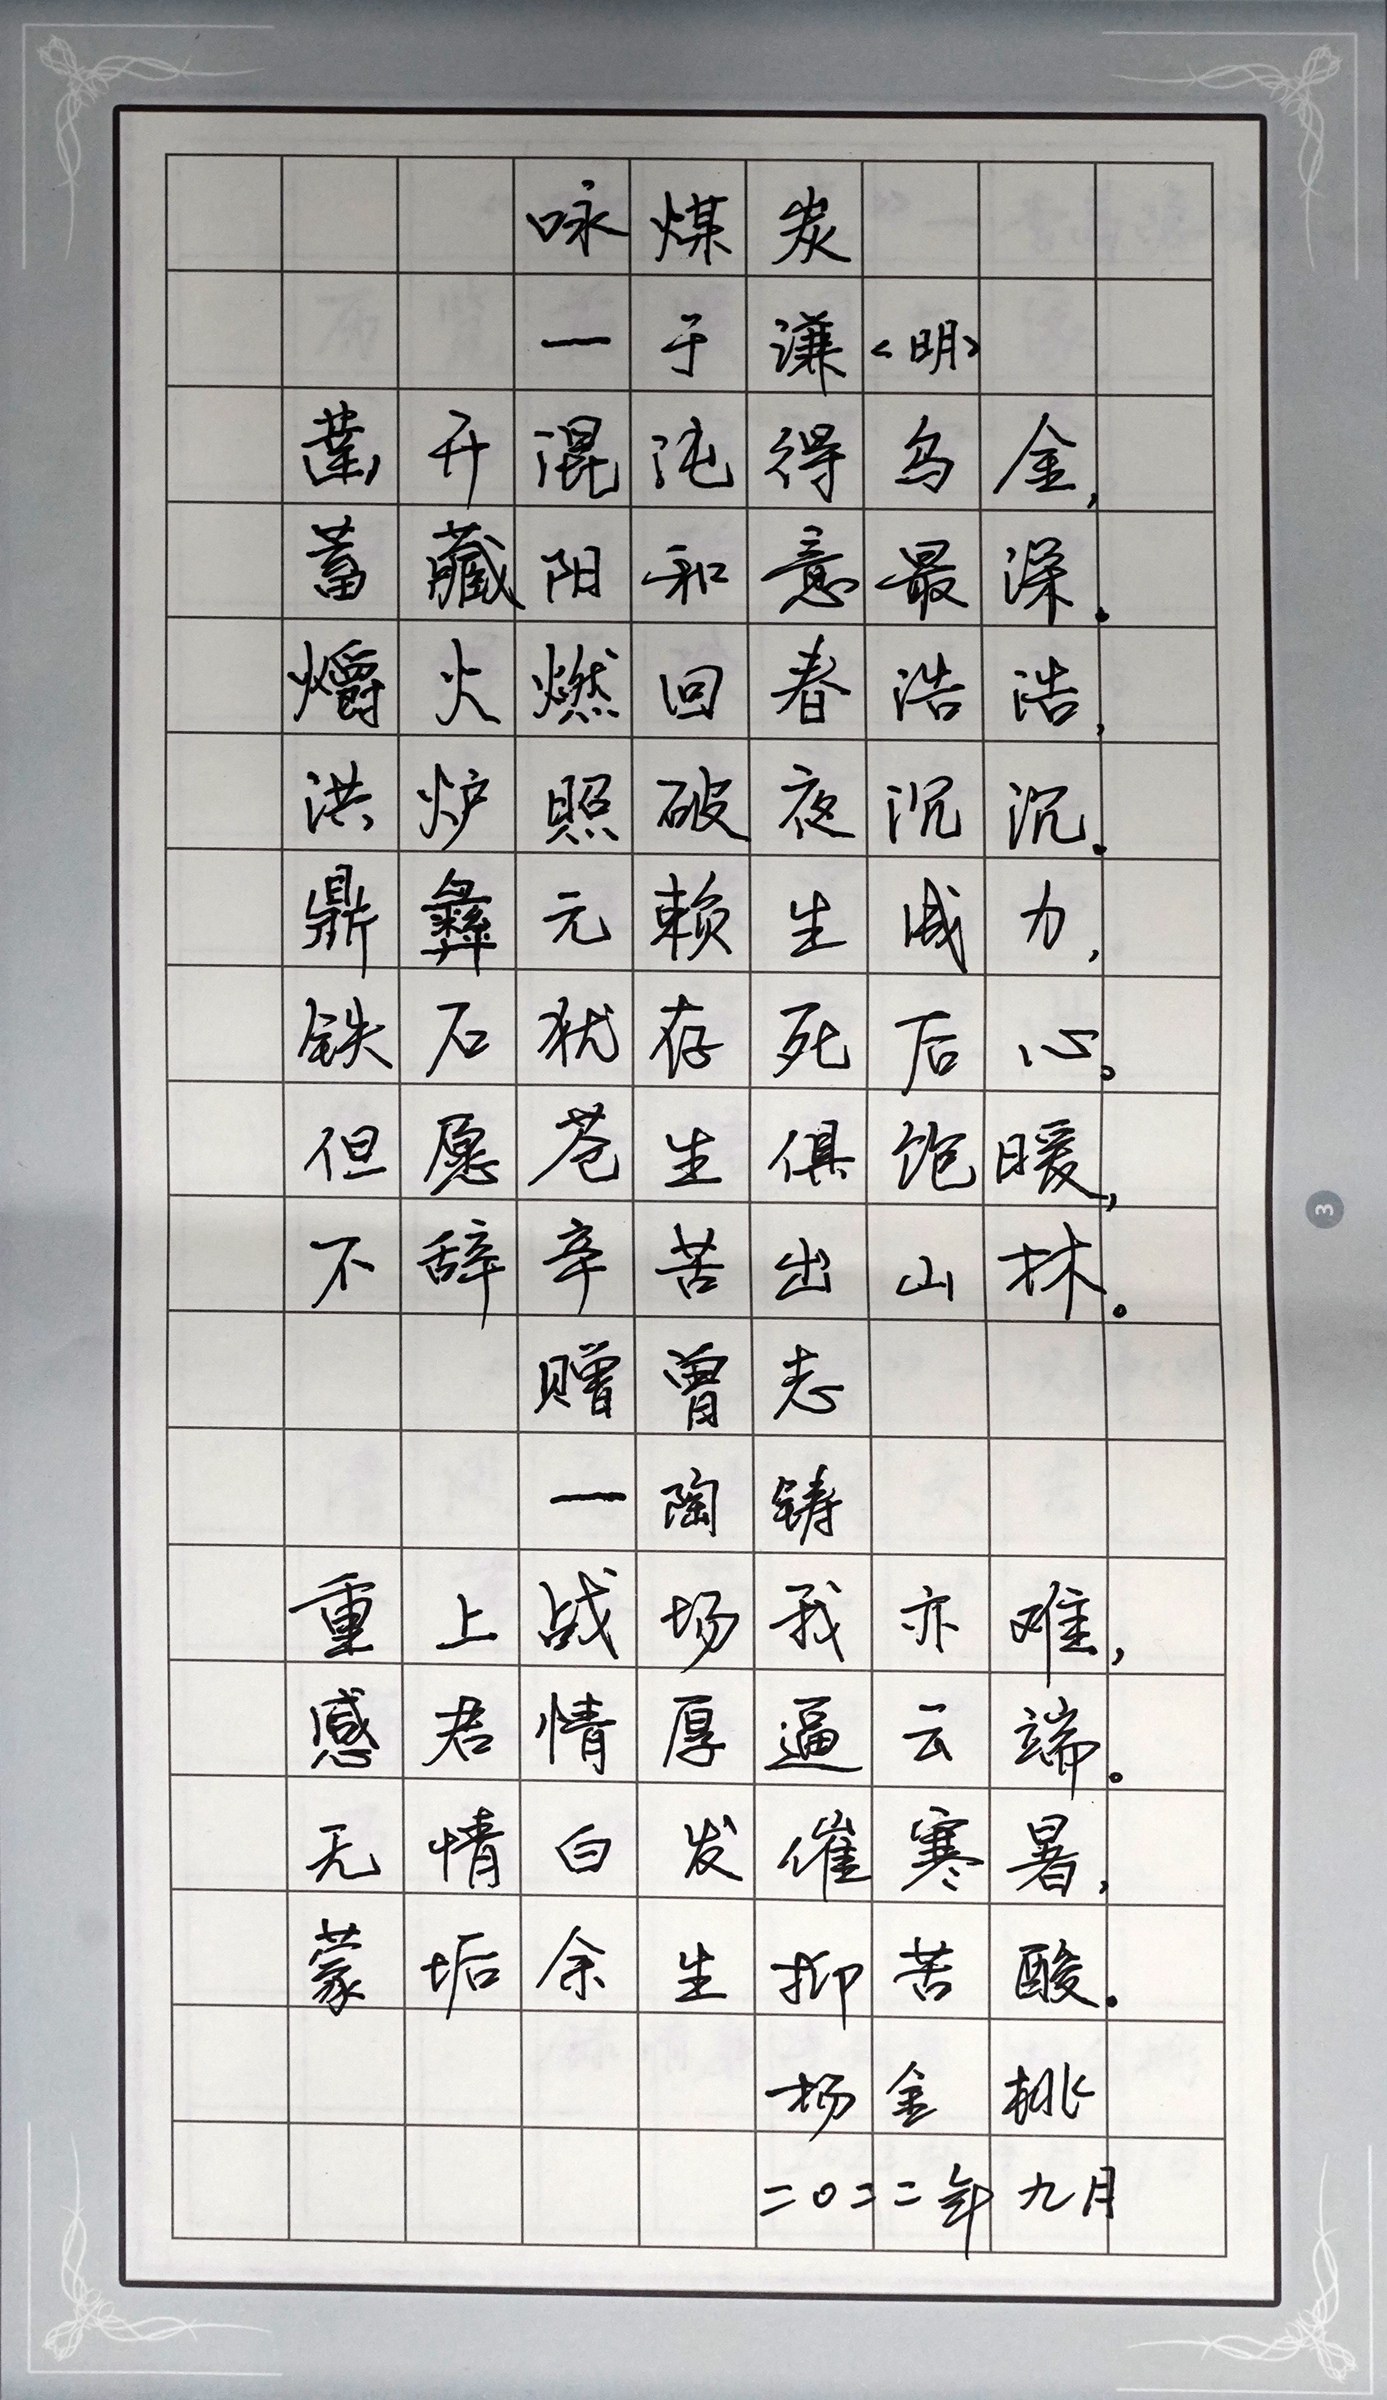 咏煤炭
一于谦<明>
开混沌得乌金,
蓄藏阳和意最深.
爝火燃回春浩浩,
洪炉照破夜沉沉.
鼎彝元赖生成力,
铁石犹存死后心。
但愿苍生俱饱暖,
不辞辛苦出山林。
赠曾志
一陶铸
重上战场我亦难,
感君情厚逼云端。
无情白发催寒暑,
蒙垢余生抑苦酸.
杨金桃
二〇二二年九月
3